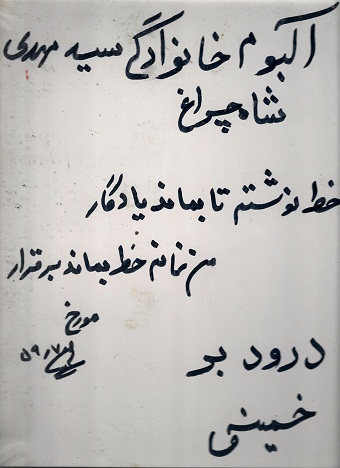 آلبوم خانوادگی سید مهدی
شاه چراغ
خط نوشتم تا بماند یادگار
من نمانم خط بماند برقرار
مورخ
درود بر
خمینی